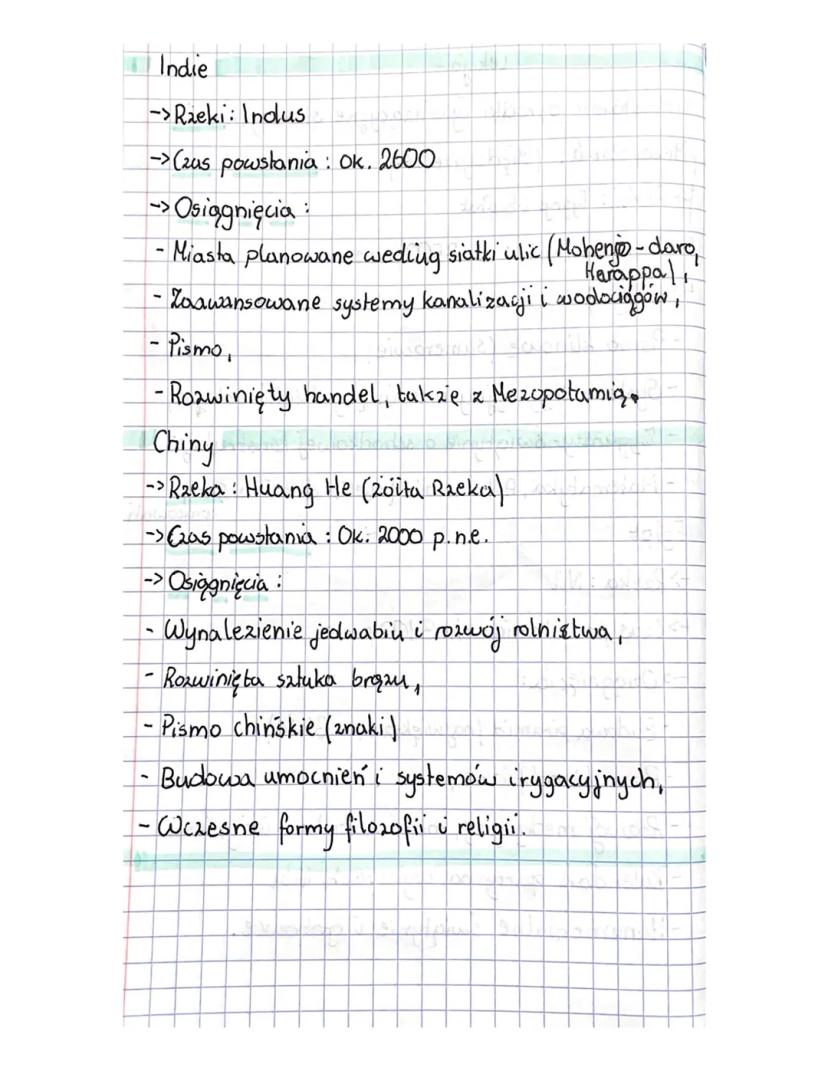 Indie
-> Rzeki: Indus
-> Czas powstania: ok. 2600
-> Osiągnięcia:
- Miasta planowane według siatki ulic (Mohenjo-daro,
Harappa),
- Zaawansowane systemy kanalizacji i wodociągów,
- Pismo,
- Rozwinięty handel, także z Mezopotamią.
Chiny
-> Rzeka: Huang He (Żółta Rzeka)
-> Czas powstania: Ok. 2000 p.n.e.
-> Osiągnięcia:
- Wynalezienie jedwabiu i rozwój rolnictwa,
- Rozwinięta sztuka brązu,
- Pismo chińskie (znaki)
- Budowa umocnień i systemów irygacyjnych,
- Wczesne formy filozofii i religii.